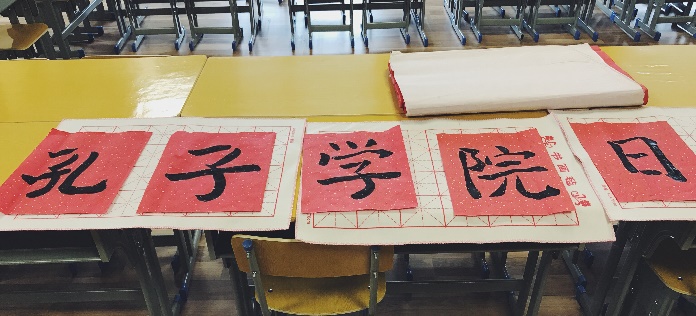 孔子学院日